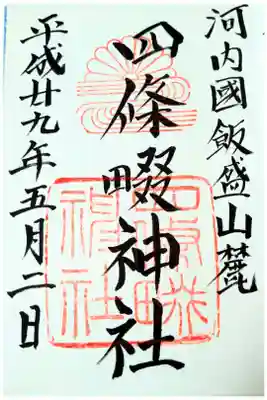 河内國飯盛山麓
四條畷神社
平成廿九年五月二日
四條畷神社